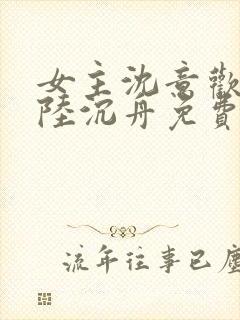 女主沈意歡
陸沉舟免費
流年往事已塵